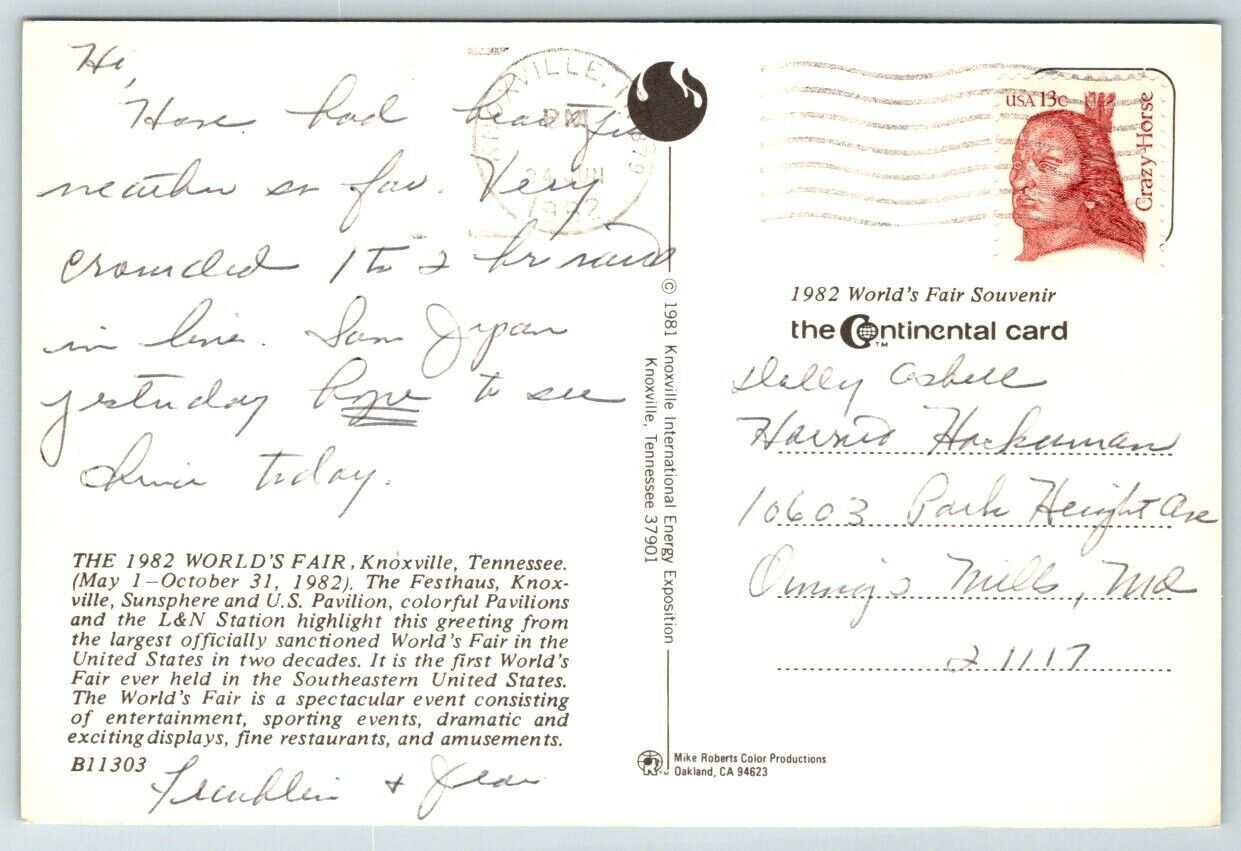 Hi,
Have had beautiful
weather so far. Very
crowded 1 to 2 hr wait
in line. Saw Japan
yestuday hope to see
China today.
THE 1982 WORLD'S FAIR, Knoxville, Tennessee.
(May 1–October 31, 1982). The Festhaus, Knox-
ville, Sunsphere and U.S. Pavilion, colorful Pavilions
and the L&N Station highlight this greeting from
the largest officially sanctioned World's Fair in the
United States in two decades. It is the first World's
Fair ever held in the Southeastern United States.
The World's Fair is a spectacular event consisting
of entertainment, sporting events, dramatic and
exciting displays, fine restaurants, and amusements.
B11303
Franklin + Jean
KNOXVILLE, TN 379
PM
24 JUN
1982
© 1981 Knoxville International Energy Exposition
Knoxville, Tennessee 37901
Mike Roberts Color Productions
Oakland, CA 94623
USA 13c
Crazy Horse
1982 World's Fair Souvenir
the Continental card
TM
Dolly Asbell
Hackerman
10603 Park Height Ave
Owings Mills, Md
21117